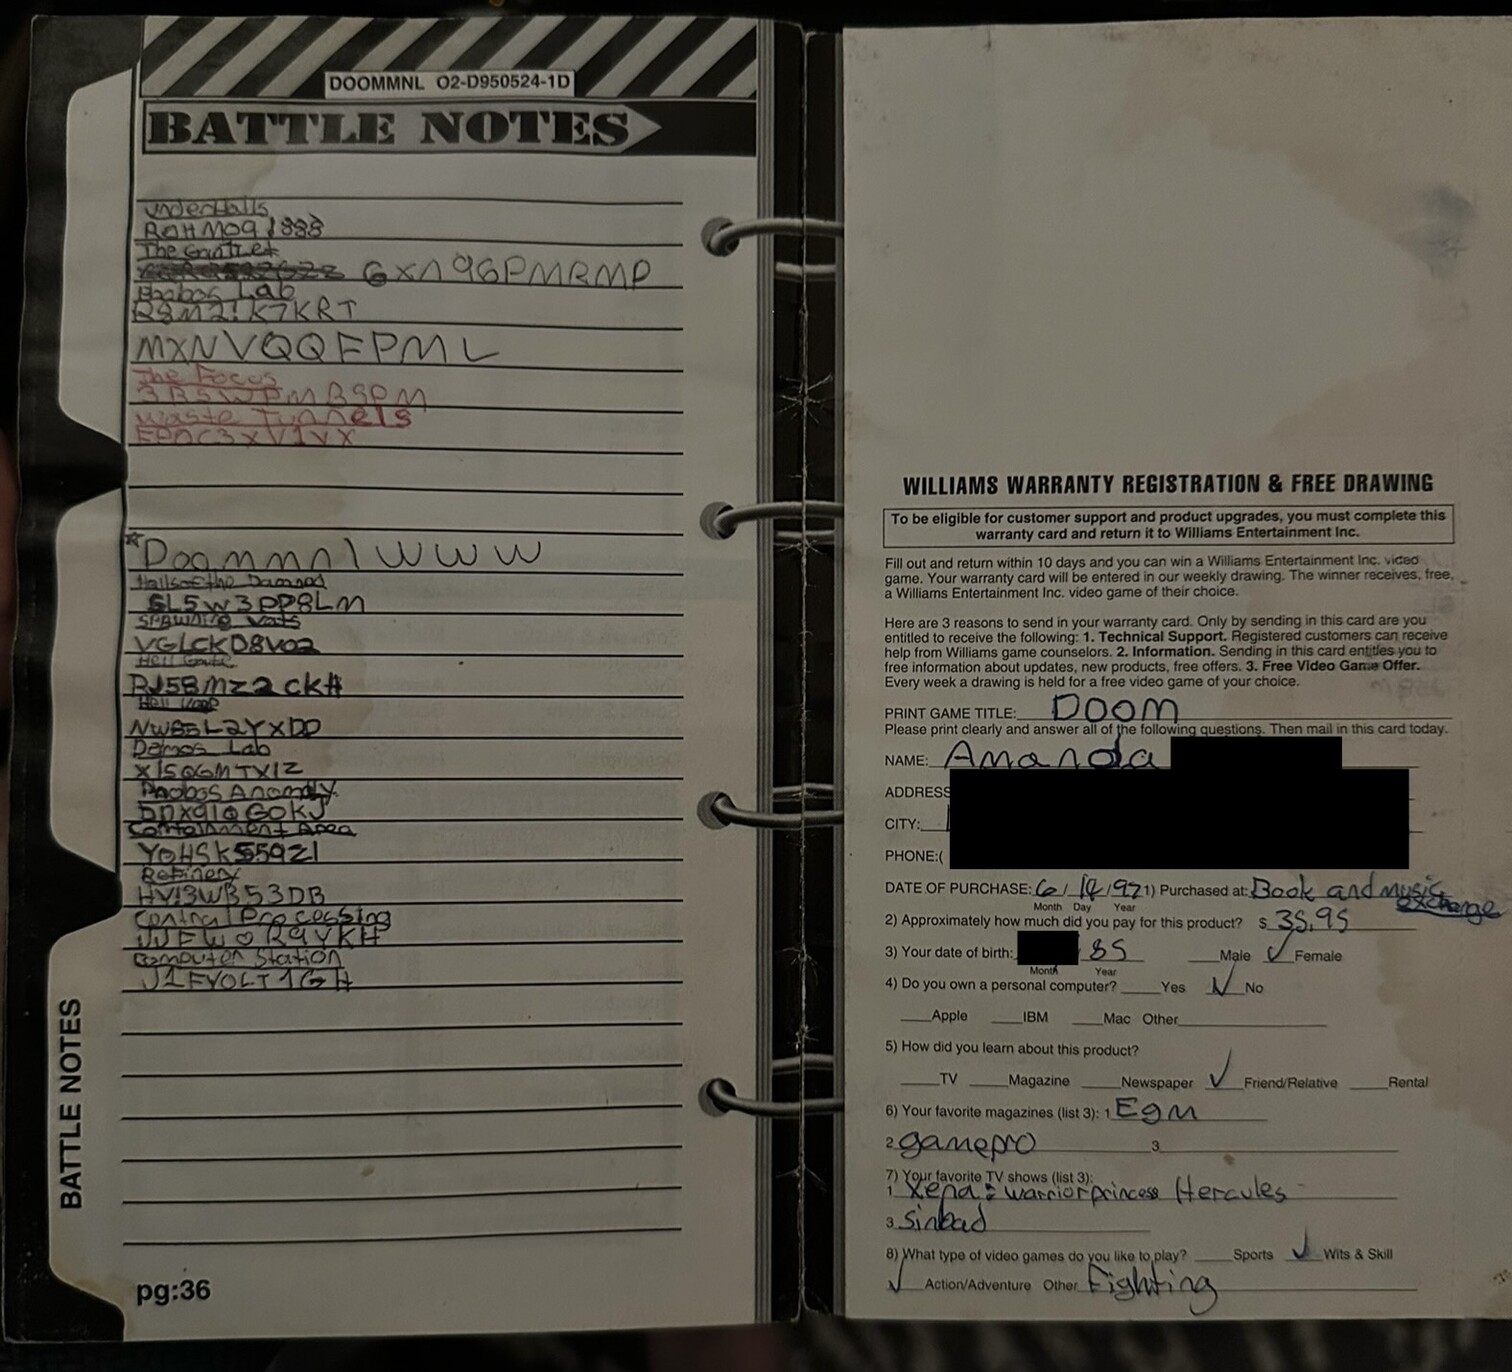 DOOMMNL O2-D950524-1D
BATTLE NOTES
underHalls
ROHM091888
The Gantlet
GXN96PMRMP
Phobos Lab
R8M2!K7KRT
MXNVQQFPML
The Focus
3B5WPMB9PM
Waste Tunnels
Doommnl WWW
Halls of the Damned
SL5W3PP8LM
Spawning Vats
VGLCKD8V02
Hell Gate
RJ5BMZ2CKH
Hell Keep
NWBBL2YXDD
Demos Lab
X1SQGMTX1Z
Phobos Anomaly
DNX91QG0KJ
Containment Area
Y0HSK559Z1
Refinery
HY13WB53DB
Central Processing
Computer Station
J1FVOLT1GH
BATTLE NOTES
pg:36
WILLIAMS WARRANTY REGISTRATION & FREE DRAWING
To be eligible for customer support and product upgrades, you must complete this
warranty card and return it to Williams Entertainment Inc.
Fill out and return within 10 days and you can win a Williams Entertainment Inc. video
game. Your warranty card will be entered in our weekly drawing. The winner receives, free,
a Williams Entertainment Inc. video game of their choice.
Here are 3 reasons to send in your warranty card. Only by sending in this card are you
entitled to receive the following: 1. Technical Support. Registered customers can receive
help from Williams game counselors. 2. Information. Sending in this card entitles you to
free information about updates, new products, free offers. 3. Free Video Game Offer.
Every week a drawing is held for a free video game of your choice.
PRINT GAME TITLE: DOOM
Please print clearly and answer all of the following questions. Then mail in this card today.
NAME: Amanda
ADDRESS
CITY:
PHONE:(
DATE OF PURCHASE: 6/ /97 1) Purchased at: Book and music
Month Day Year exchange
2) Approximately how much did you pay for this product? $ 35.95
3) Your date of birth: 85 Male ✓ Female
Month Year
4) Do you own a personal computer? Yes ✓ No
Apple IBM Mac Other
5) How did you learn about this product?
TV Magazine Newspaper ✓ Friend/Relative Rental
6) Your favorite magazines (list 3): 1 Egm
2 gamepro 3
7) Your favorite TV shows (list 3):
1 Xena: warrior princess Hercules
3 Sinbad
8) What type of video games do you like to play? Sports ✓ Wits & Skill
✓ Action/Adventure Other Fighting